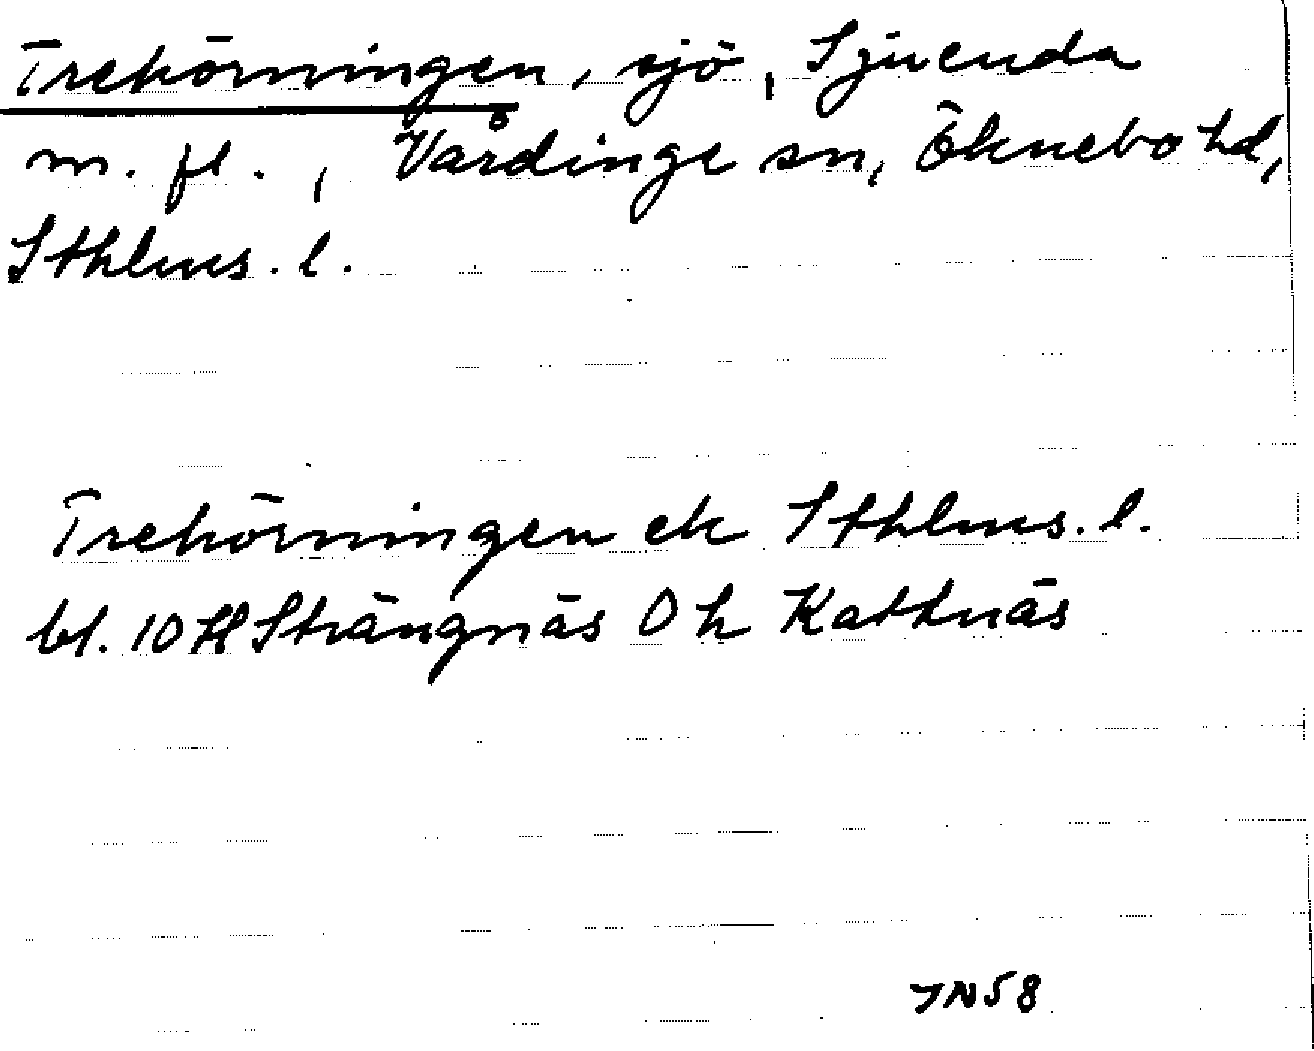 Trehörningen, sjö, Sjuenda
m. fl., Vårdinge sn, Öknebo hd,
Sthlms. l.
Trehörningen ek Sthlms. l.
bl. 10 H Strängnäs 0 h Kattnäs
JN58